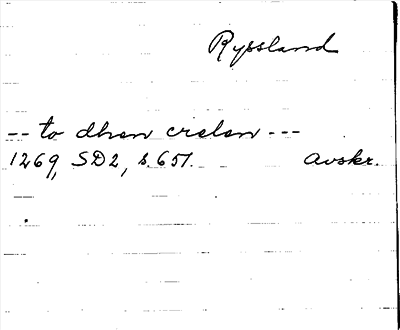 Ryssland
-- to dhen crelen ---
1269, SD2, s. 651. Avskr.